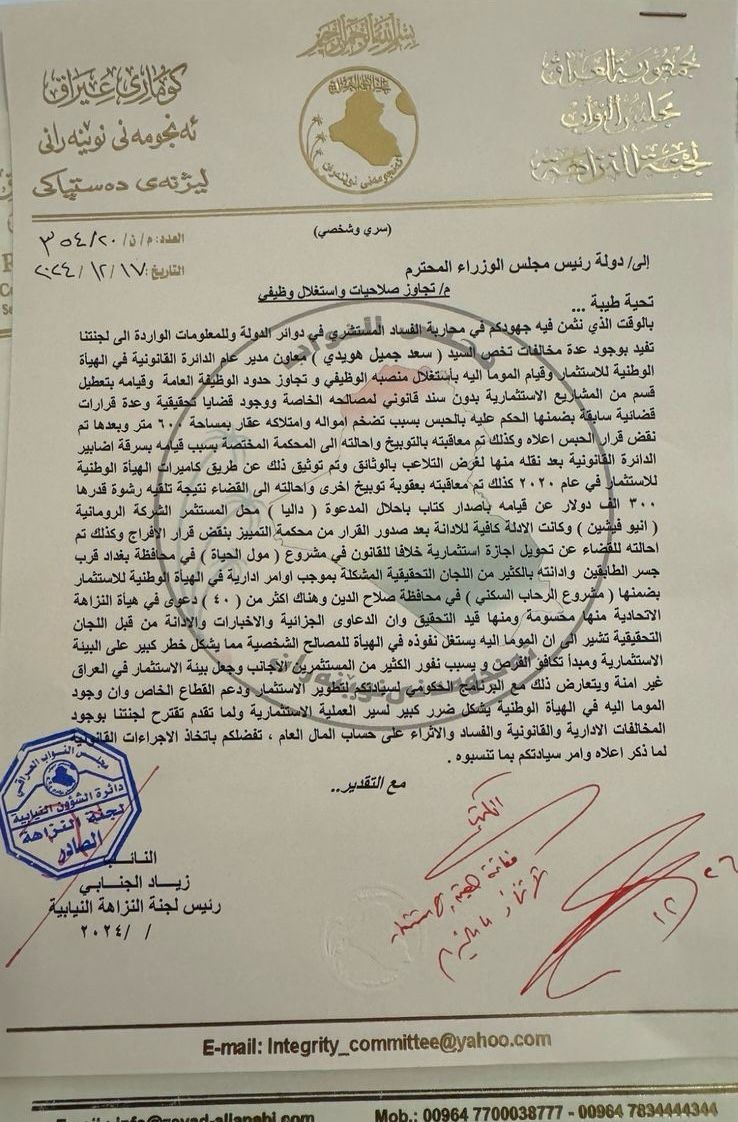 بسم الله الرحمن الرحيم
جمهورية العراق
مجلس النواب
لجنة النزاهة
كۆماری عێراق
ئەنجومەنی نوێنەرانی
لیژنەی دەستپاکی
(سري وشخصي)
العدد: م/ن/ ٢٠/ ٣٥٤
التاريخ: ١٧/ ١٢/ ٢٠٢٤
إلى/ دولة رئيس مجلس الوزراء المحترم
م/ تجاوز صلاحيات واستغلال وظيفي
تحية طيبة ...
بالوقت الذي نثمن فيه جهودكم في محاربة الفساد المستشري في دوائر الدولة وللمعلومات الواردة الى لجنتنا
تفيد بوجود عدة مخالفات تخص السيد ( سعد جميل هويدي ) معاون مدير عام الدائرة القانونية في الهيأة
الوطنية للاستثمار وقيام الموما اليه بأستغلال منصبه الوظيفي و تجاوز حدود الوظيفة العامة وقيامه بتعطيل
قسم من المشاريع الاستثمارية بدون سند قانوني لمصالحه الخاصة ووجود قضايا تحقيقية وعدة قرارات
قضائية سابقة بضمنها الحكم عليه بالحبس بسبب تضخم امواله وامتلاكه عقار بمساحة ٦٠٠ متر وبعدها تم
نقض قرار الحبس اعلاه وكذلك تم معاقبته بالتوبيخ واحالته الى المحكمة المختصة بسبب قيامه بسرقة اضابير
الدائرة القانونية بعد نقله منها لغرض التلاعب بالوثائق وتم توثيق ذلك عن طريق كاميرات الهيأة الوطنية
للاستثمار في عام ٢٠٢٠ كذلك تم معاقبته بعقوبة توبيخ اخرى واحالته الى القضاء نتيجة تلقيه رشوة قدرها
٣٠٠ الف دولار عن قيامه بأصدار كتاب باحلال المدعوة ( داليا ) محل المستثمر الشركة الرومانية
( انيو فيشين ) وكانت الادلة كافية للادانة بعد صدور القرار من محكمة التمييز بنقض قرار الأفراج وكذلك تم
احالته للقضاء عن تحويل اجازة استثمارية خلافا للقانون في مشروع ( مول الحياة ) في محافظة بغداد قرب
جسر الطابقين وادانته بالكثير من اللجان التحقيقية المشكلة بموجب اوامر ادارية في الهيأة الوطنية للاستثمار
بضمنها ( مشروع الرحاب السكني ) في محافظة صلاح الدين وهناك اكثر من ( ٤٠ ) دعوى في هيأة النزاهة
الاتحادية منها محسومة ومنها قيد التحقيق وان الدعاوى الجزائية والاخبارات والادانة من قبل اللجان
التحقيقية تشير الى ان الموما اليه يستغل نفوذه في الهيأة للمصالح الشخصية مما يشكل خطر كبير على البيئة
الاستثمارية ومبدأ تكافؤ الفرص و يسبب نفور الكثير من المستثمرين الاجانب وجعل بيئة الاستثمار في العراق
غير امنة ويتعارض ذلك مع البرنامج الحكومي لسيادتكم لتطوير الاستثمار ودعم القطاع الخاص وان وجود
الموما اليه في الهيأة الوطنية يشكل ضرر كبير لسير العملية الاستثمارية ولما تقدم تقترح لجنتنا بوجود
المخالفات الادارية والقانونية والفساد والاثراء على حساب المال العام ، تفضلكم باتخاذ الاجراءات القانونية
لما ذكر اعلاه وامر سيادتكم بما تنسبوه .
مع التقدير..
مجلس النواب العراقي
دائرة الشؤون النيابية
لجنة النزاهة
الصادر
النائب
زياد الجنابي
رئيس لجنة النزاهة النيابية
/ /٢٠٢٤
٢٦
١٢
E-mail: Integrity_committee@yahoo.com
Mob.: 00964 7700038777 - 00964 7834444344